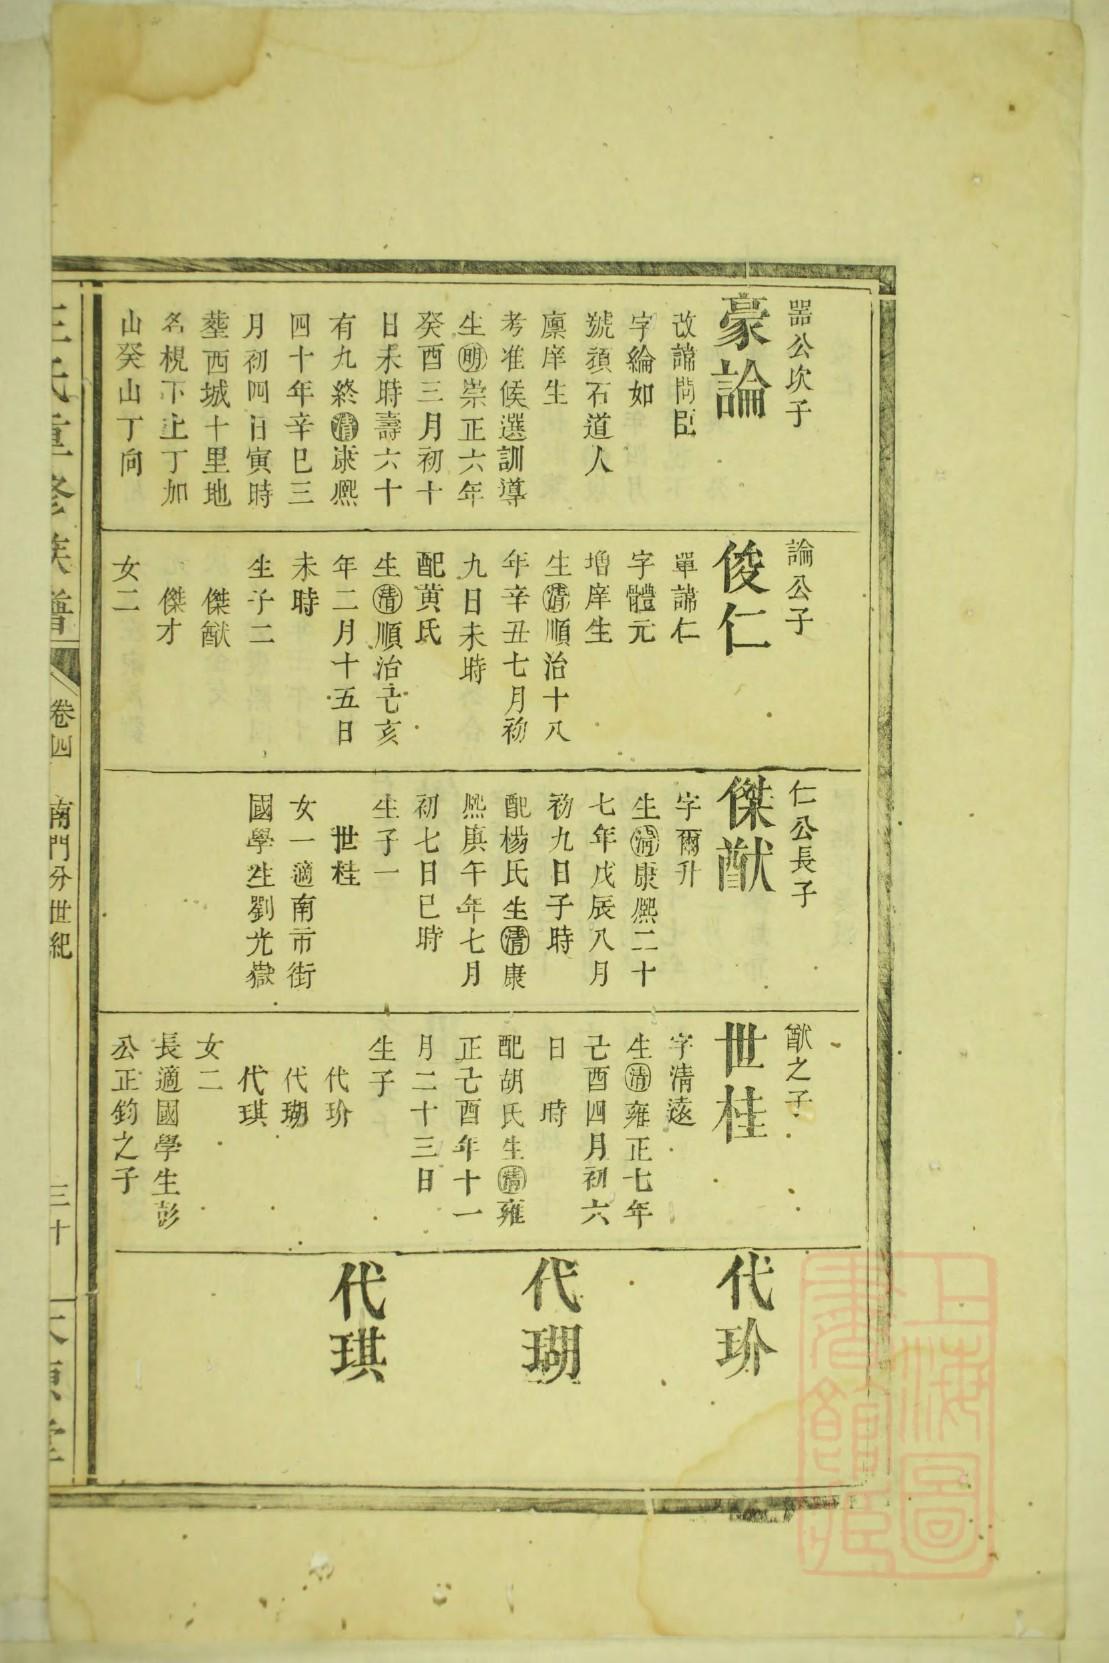 噐公次子
豪論
改諱問臣
字綸如
號頑石道人
廪庠生
考准候選訓導
生明崇正六年
癸酉三月初十
日未時壽六十
有九終清康熙
四十年辛巳三
月初四日寅時
塟西城十里地
名枧下上丁加
山癸山丁向
論公子
俊仁
單諱仁
字體元
增庠生
生清順治十八
年辛丑七月初
九日未時
配黃氏
生清順治己亥
年二月十五日
未時
生子二
傑猷
傑才
女二
仁公長子
傑猷
字爾升
生清康熙二十
七年戊辰八月
初九日子時
配楊氏生清康
熙庚午年七月
初七日巳時
生子一
世桂
女一適南市街
國學生劉光嶽
猷之子
世桂
字清遠
生清雍正七年
己酉四月初六
日 時
配胡氏生清雍
正己酉年十一
月二十三日
生子
代玠
代瑚
代琪
女二
長適國學生彭
公正鈞之子
代玠
代瑚
代琪
王氏重修族譜
卷四
南門分世紀
三十
太原堂
上海圖
書館藏